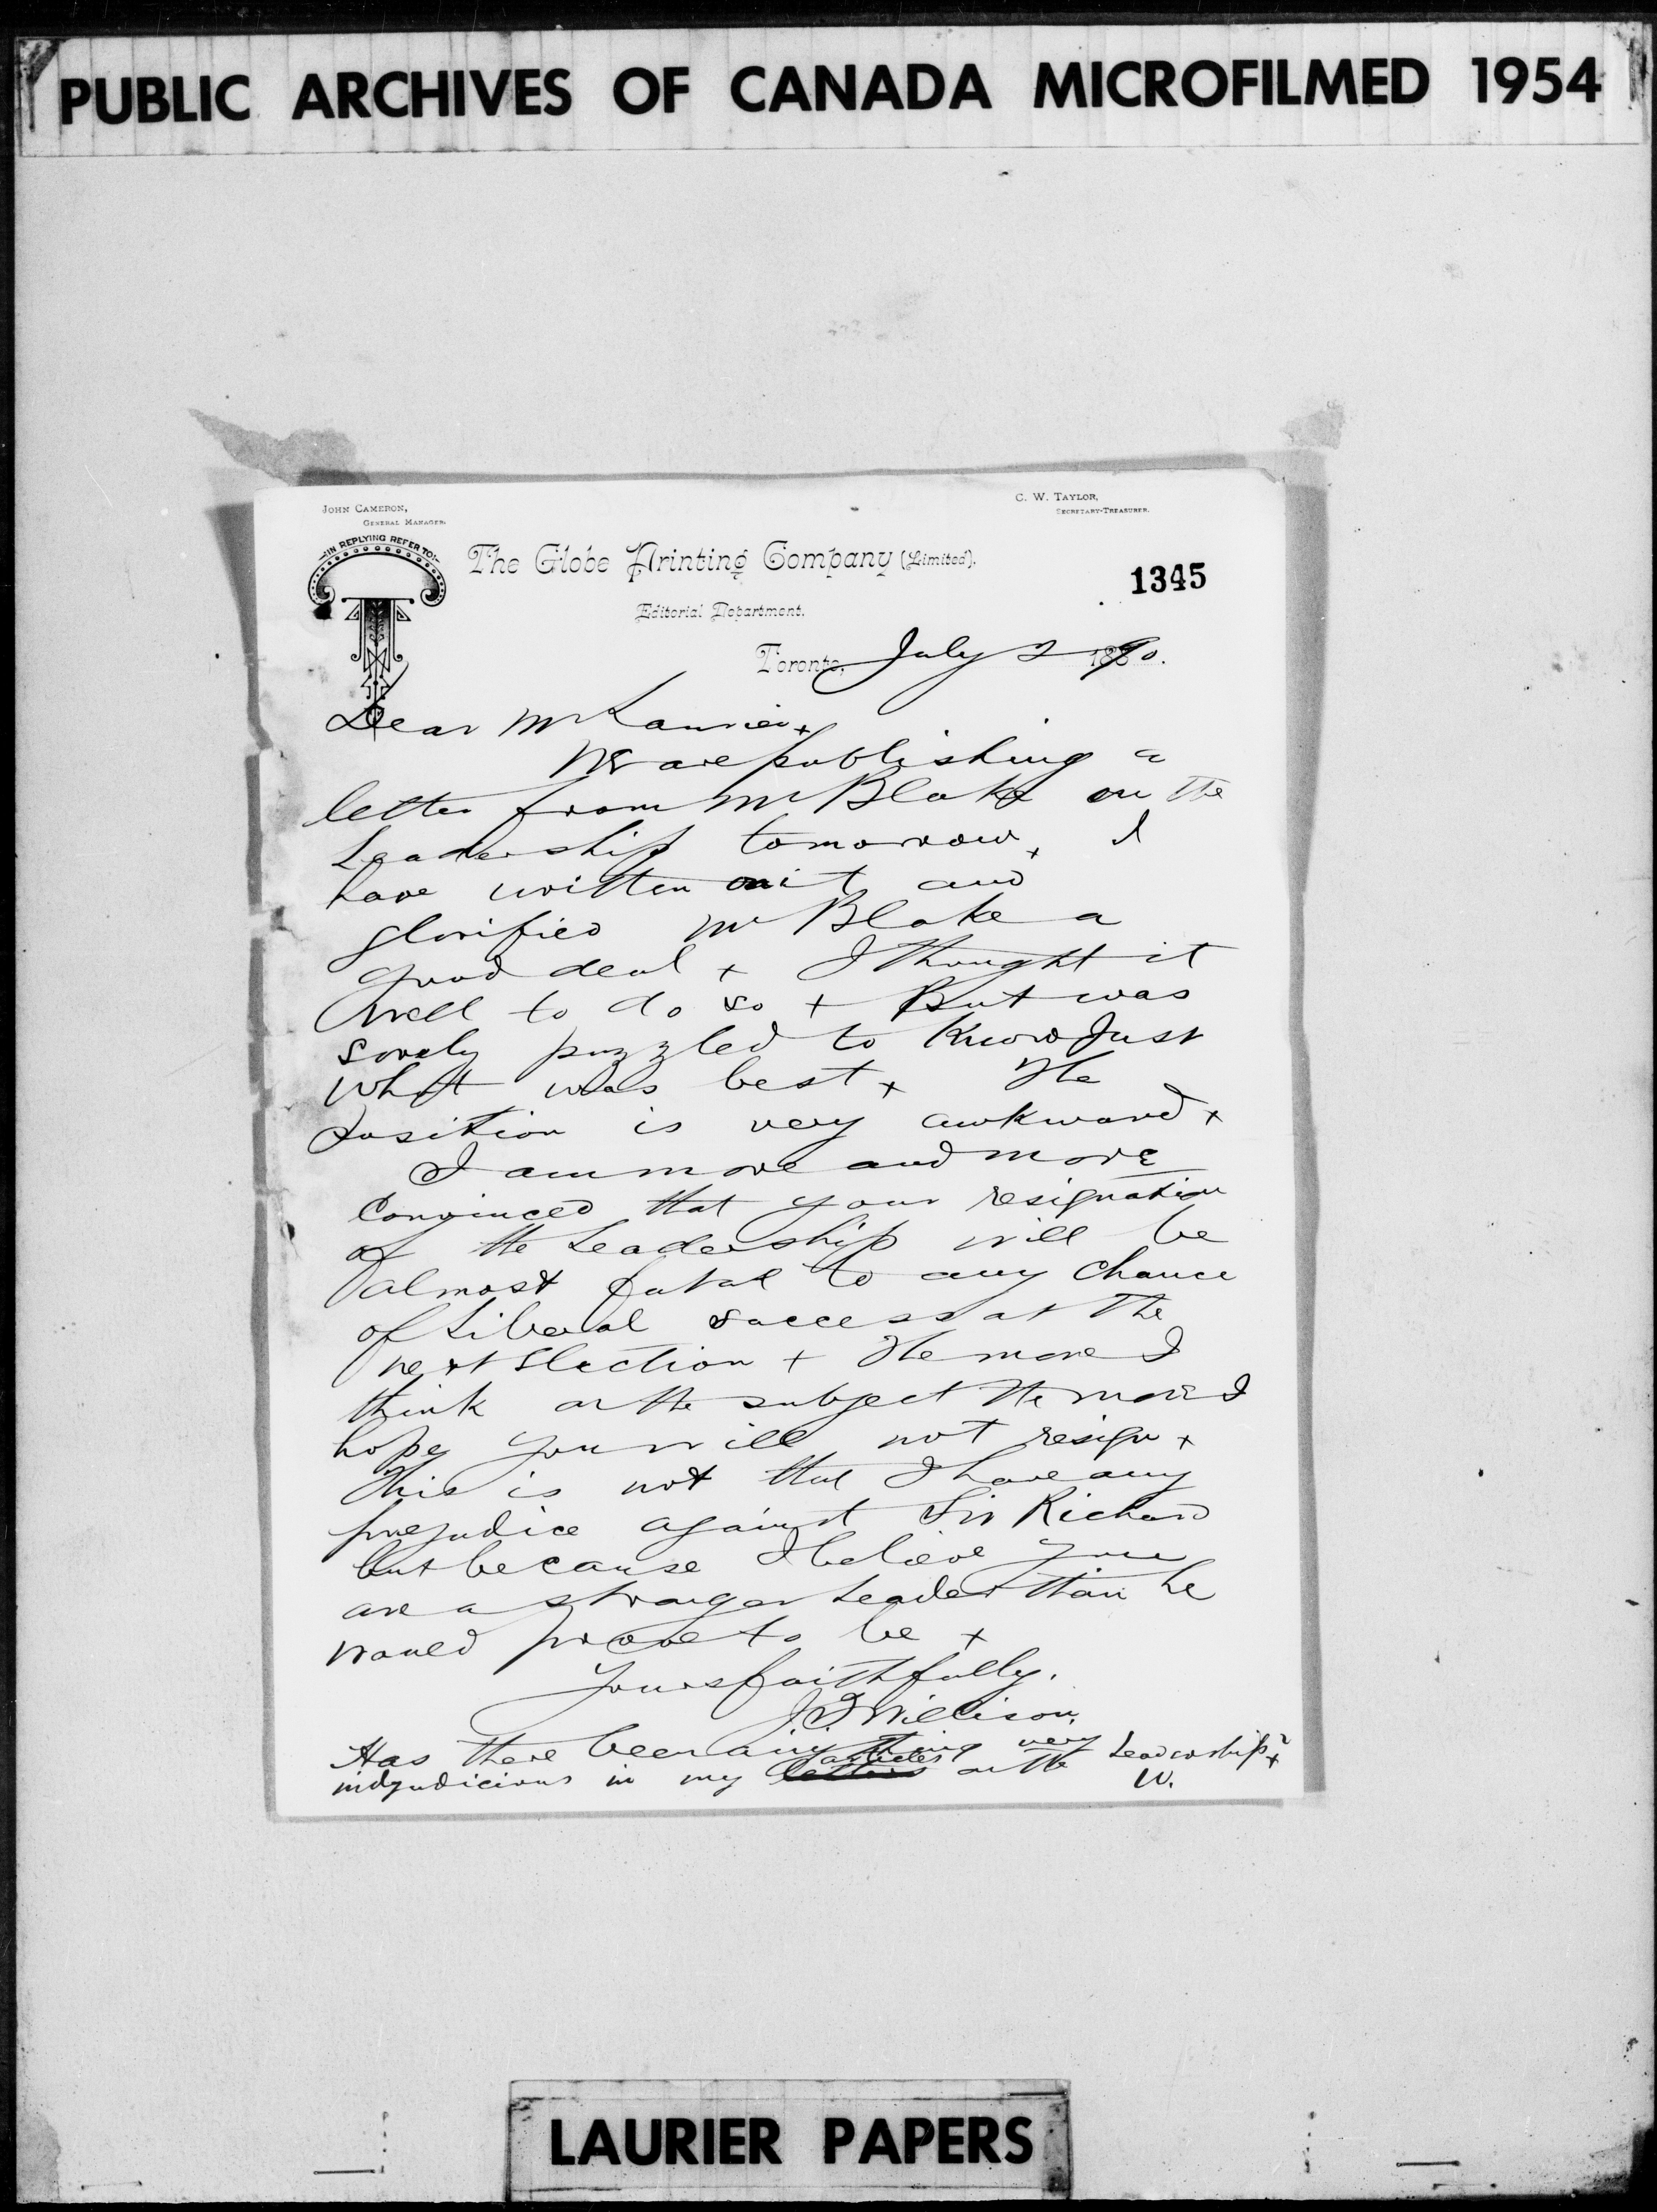 PUBLIC ARCHIVES OF CANADA MICROFILMED 1954
JOHN CAMERON,
GENERAL MANAGER.
C. W. TAYLOR,
SECRETARY-TREASURER.
IN REPLYING REFER TO:
The Globe Printing Company (Limited).
1345
Editorial Department.
Toronto, July 2 1890.
Dear Mr Laurier x
We are publishing a
letter from Mr Blake on the
Leadership tomorrow x I
have written on it and
glorified Mr Blake a
good deal x I thought it
well to do so x But was
sorely puzzled to know just
what was best x The
position is very awkward x
I am more and more
convinced that your resignation
of the Leadership will be
almost fatal to any chance
of Liberal success at the
next Election x The more I
think on the subject the more I
hope you will not resign x
This is not that I have any
prejudice against Sir Richard
but because I believe you
are a stronger Leader than he
would prove to be x
Yours faithfully.
J S Willison.
Has there been any thing very
injudicious in my letters articles on the Leadership? x
W.
LAURIER PAPERS